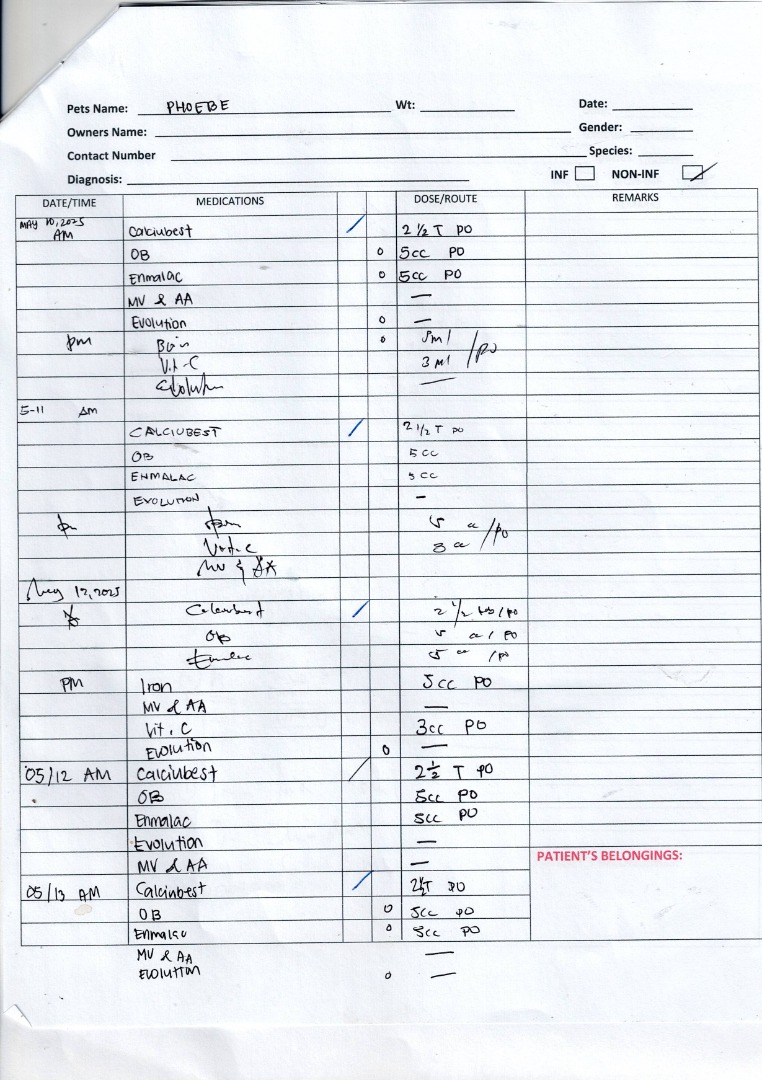 Pets Name: PHOEBE Wt: Date:
Owners Name: Gender:
Contact Number Species:
Diagnosis: INF NON-INF
DATE/TIME MEDICATIONS DOSE/ROUTE REMARKS
MAY 10, 2025
AM Calciubest / 2 ½ T PO
OB o 5cc PO
Enmalac o 5cc PO
MV & AA —
Evolution o —
pm o 5ml /PO
Vit-C 3 ml
—
5-11 AM
CALCIUBEST / 2 1/2 T PO
OB 5 CC
ENMALAC 5 CC
EVOLUTION —
5 cc /PO
Vit-C 3 cc
MV & AA
May 12, 2025
Calciubest / 2 1/2 /PO
OB 5 cc / PO
5 cc /PO
PM Iron 5cc PO
MV & AA —
Vit. C 3cc PO
Evolution o —
05/12 AM Calciubest / 2 ½ T PO
OB 5cc PO
Enmalac 5cc PO
Evolution —
MV & AA —
PATIENT'S BELONGINGS:
05/13 AM Calciubest / 2½T PO
OB o 5cc PO
Enmalac o 5cc PO
MV & AA —
Evolution o —